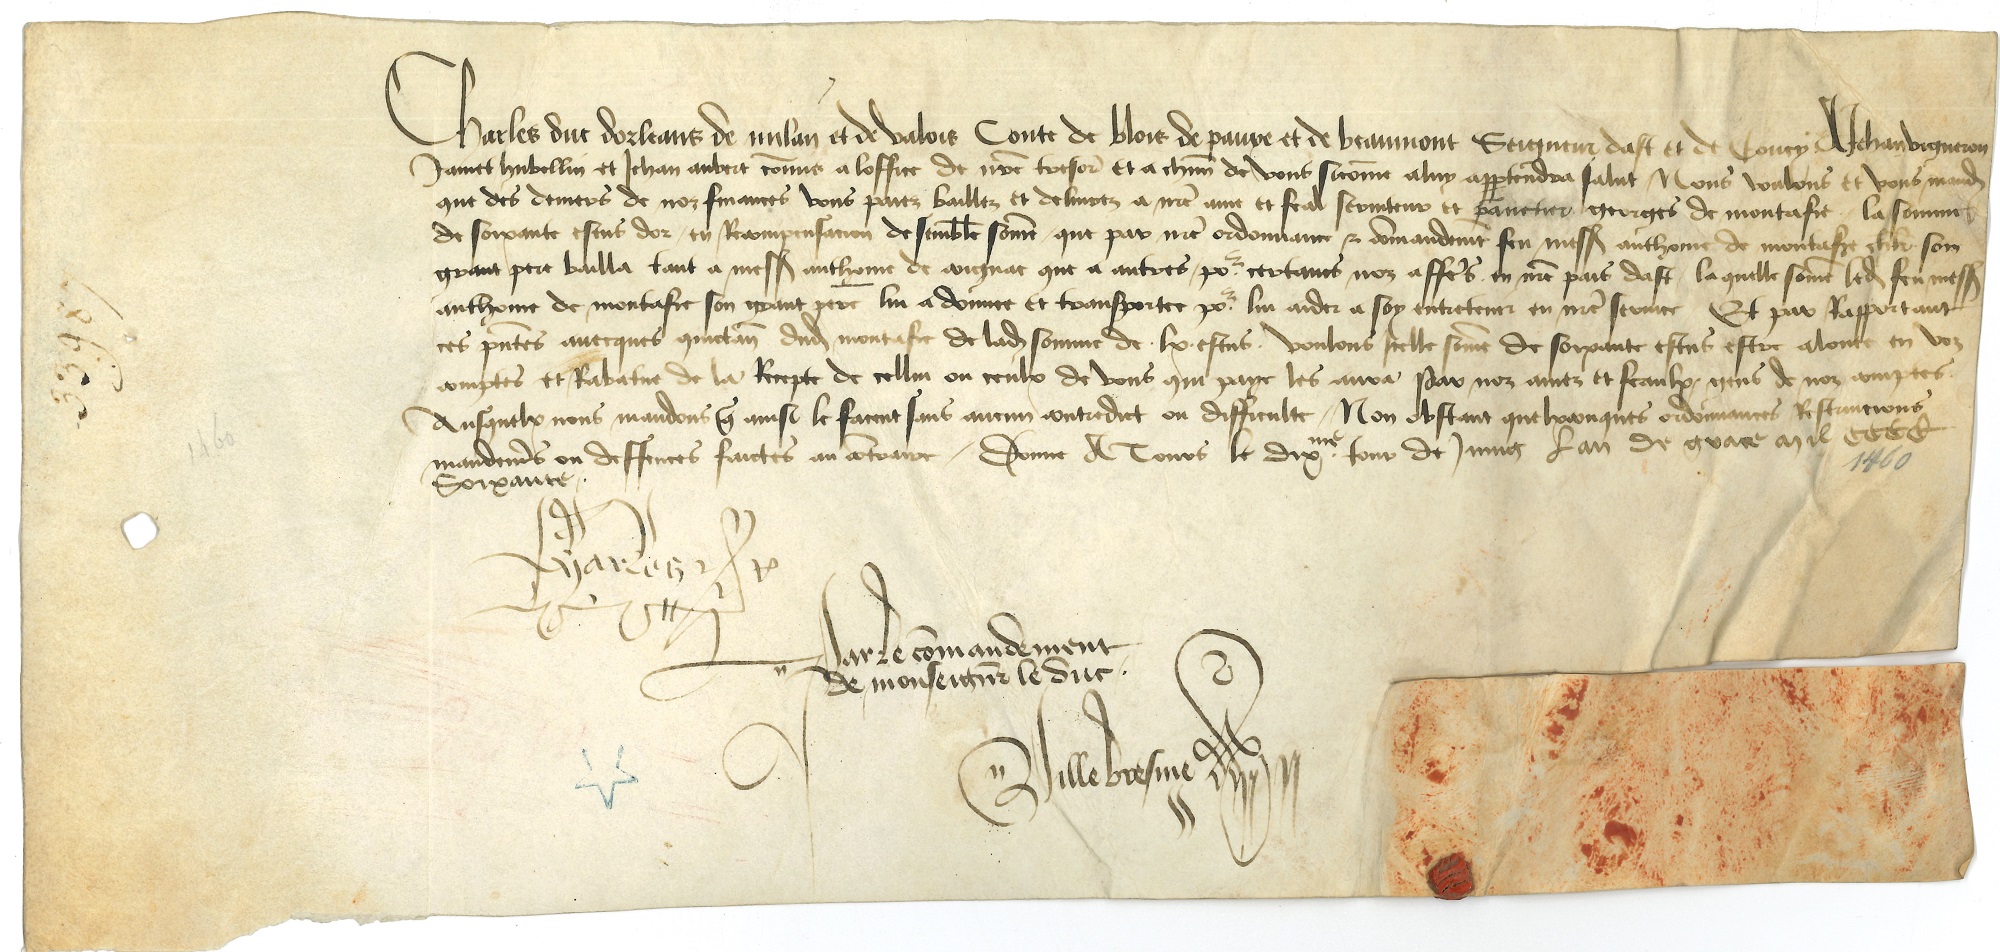 Charles duc dorleans de milan et de valois Conte de blois de pavye et de beaumont Seigneur dast et de Coucy A Jehan vigneron
Jamet hubellin et Jehan aubert commis a loffice de nre tresor et a chun de vous sicome a luy appartendra salut Nous voulons et vous mandons
que des deniers de noz finances vous paiez baillez et delivrez a nre ame et feal serviteur et pannetier georges de montafie la somme
de soixante escus dor en Recompensacion de semble some que par nre ordonnance & comandement feu messe anthoine de montafie chlr son
grant pere bailla tant a messe anthoine de cuignac que a autres por certains noz affes en nre pais dast laquelle some led feu messe
anthoine de montafie son grant pere lui a donnee et transportee por lui aider a soy entretenir en nre service Et par Rapportant
ces pntes avecques quictance dud montafie de lad somme de lx escus voulons icelle some de soixante escus estre alouee en voz
comptes et Rabatue de la Recepte de cellui ou ceulx de vous qui paye les aura par noz amez et feaulx gens de noz comptes
Ausquelx nous mandons que ainsi le facent sans aucun contredict ou difficulte Non obstant quelxconques ordonnances Restrinctions
mandemens ou deffences faictes au contraire Donne A Tours le dixme jour de Juing Lan de grace mil CCCC
Soixante
1460
1460
Charles
Par le comandement
de monseignr le duc
Villebresme